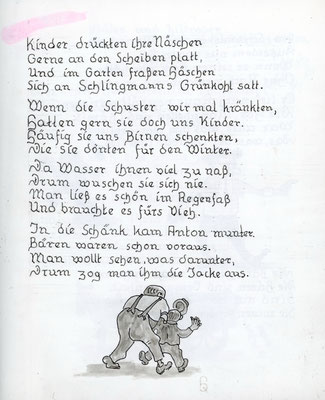 Kinder drückten ihre Näschen
Gerne an den Scheiben platt,
Und im Garten fraßen Häschen
Sich an Schlingmanns Grünkohl satt.
Wenn die Schuster wir mal kränkten,
Hatten gern sie doch uns Kinder.
Häufig sie uns Birnen schenkten,
Die sie dörrten für den Winter.
Da Wasser ihnen viel zu naß,
Drum wuschen sie sich nie.
Man ließ es schön im Regenfaß
Und brauchte es fürs Vieh.
In die Schänk kam Anton munter.
Bären waren schon voraus.
Man wollt sehen, was darunter,
Drum zog man ihm die Jacke aus.